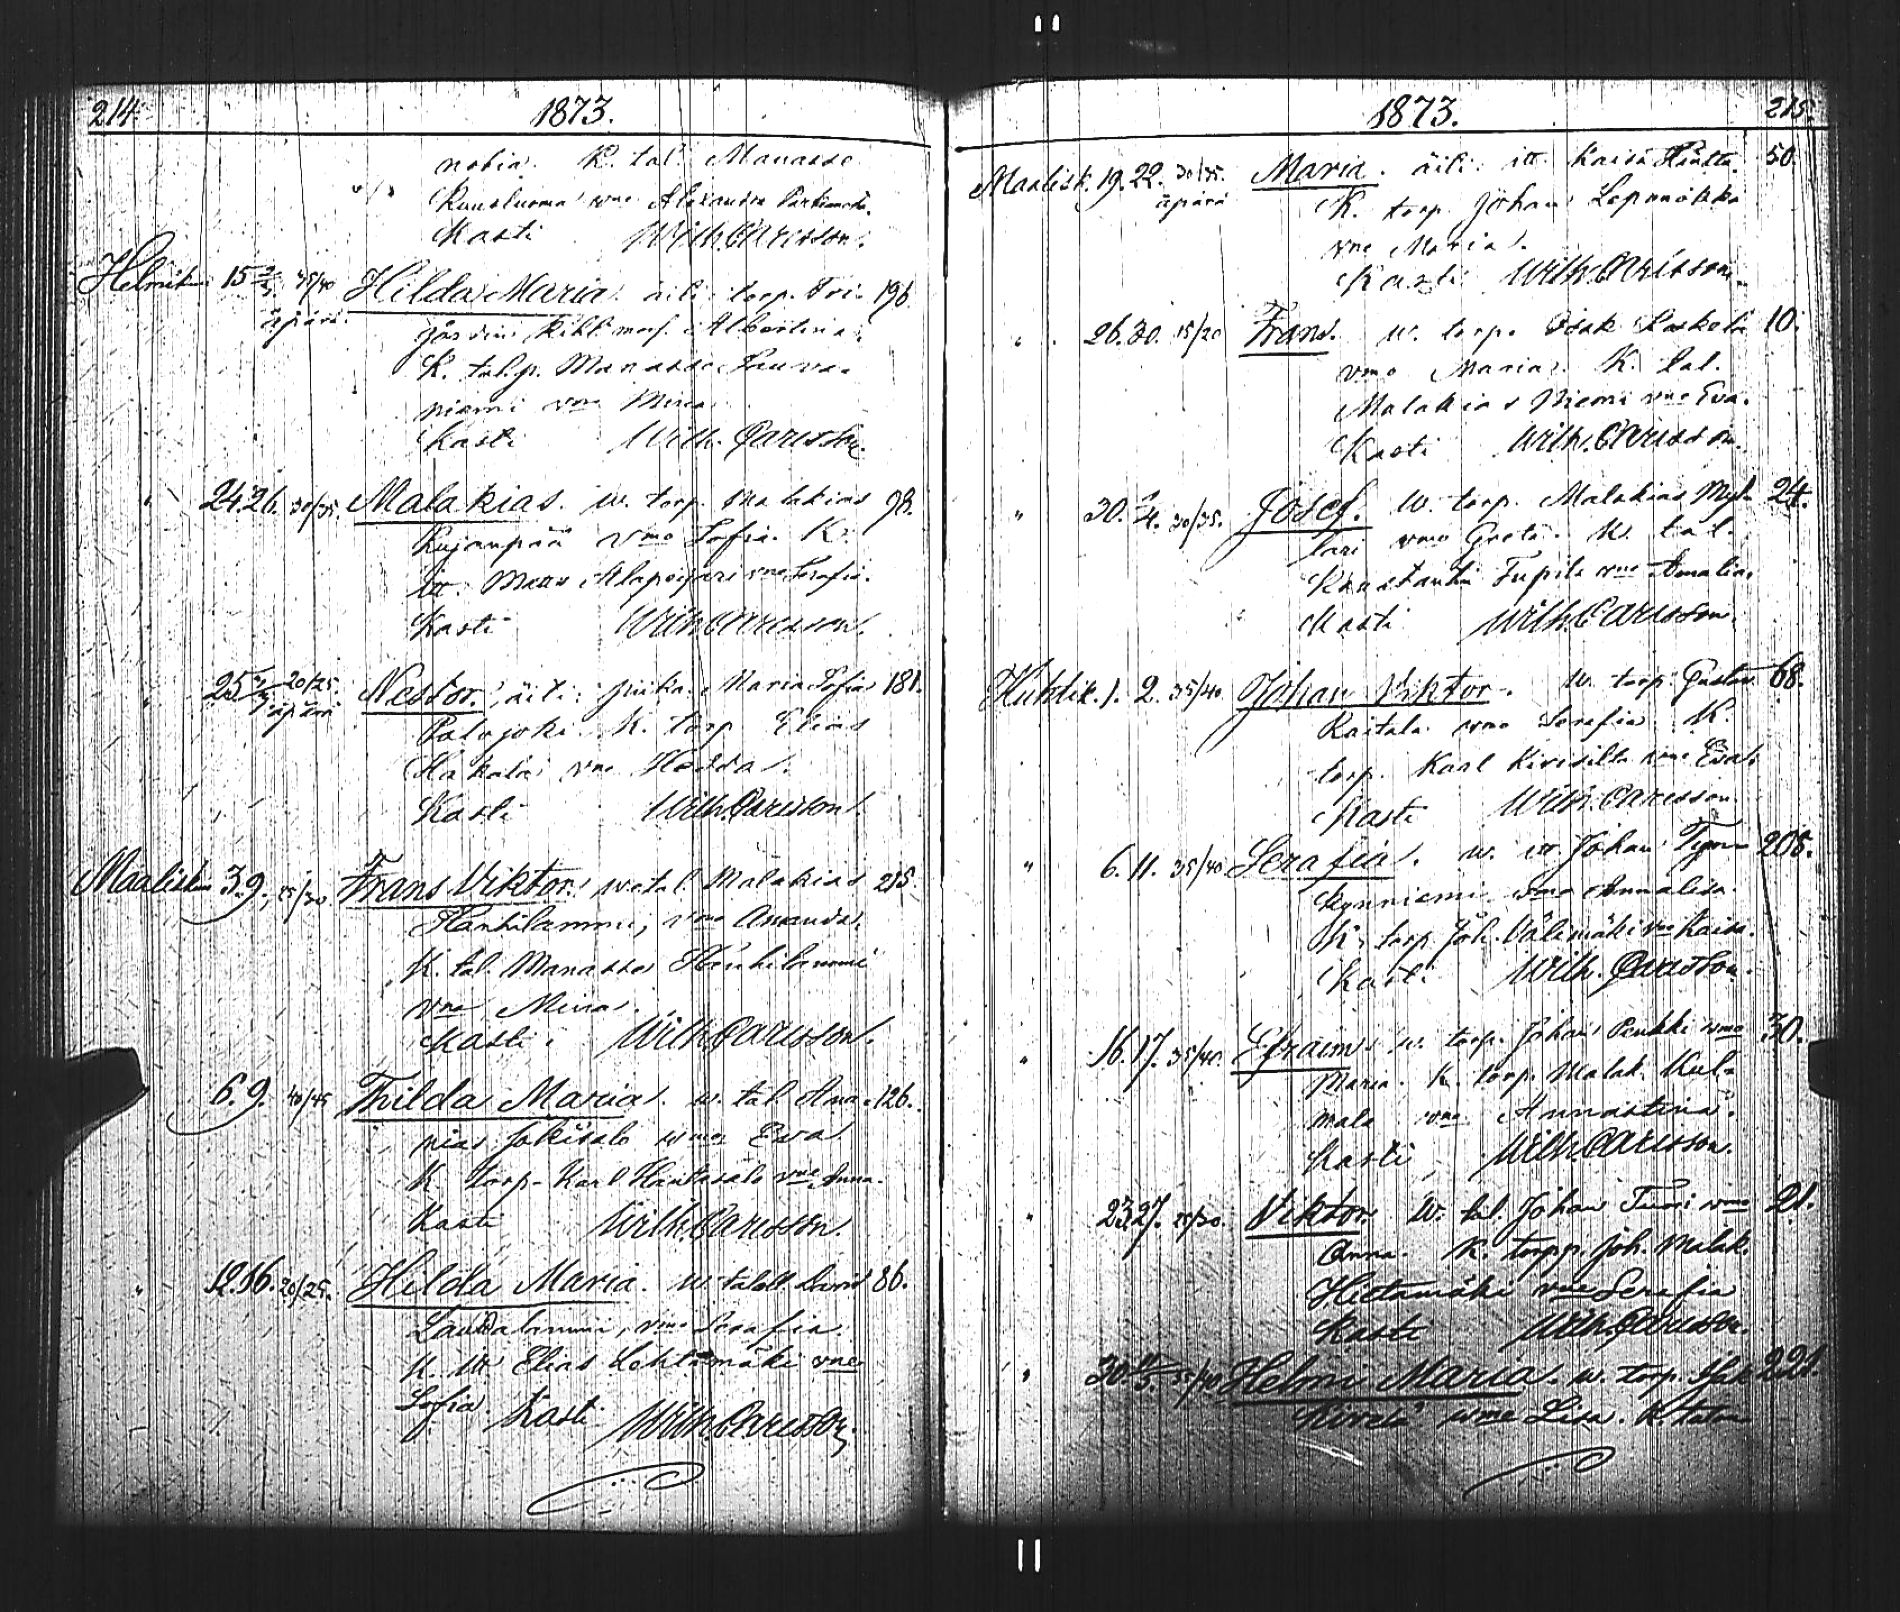 214. 1873.
nobia. K. tal. Manasse
Kuusluoma vmo Alexandra
Kasti Wilh. Carlsson.
Helmik. 15 2/3. 45/40 Hilda Maria. äiti: torp. 196.
äpärä. Albertina.
K. tal. p. Manasse Laura-
niemi vmo Mina.
Kasti Wilh. Carlsson.
" 24. 26. 30/35. Malakias. w. torp. Malakias 98.
Rujanpää vmo Sofia. K.
itt. Matts Alapoijari vmo Serafia.
Kasti Wilh. Carlsson.
" 25 20/25. Nestor. äiti: piika Maria Sofia 181.
äpärä. Palojoki. K. torp. Elias
Hakala vmo Hedda.
Kasti Wilh. Carlsson.
Maalisk. 3. 9. 25/30 Frans Viktor. w. tal. Malakias 215.
Hanhilammi, vmo Amanda.
K. tal. Manasse Hanhilammi
vmo Mina.
Kasti. Wilh. Carlsson.
6. 9. 40/45 Thilda Maria. w. tal. Ana- 126.
nias Jokisalo vmo Eva.
K. torp. Karl Hautasalo vmo Anna.
Kasti Wilh. Carlsson.
" 12. 16. 20/25. Hilda Maria. w. taloll. David 86.
Laudalammi, vmo Serafia.
K. itt. Elias Lehtimäki vmo
Sofia. Kasti Wilh. Carlsson.
1873. 215.
Maalisk. 19. 22. 30/35. Maria. äiti: itt. Kaisa 50.
äpärä K. torp. Johan Lepomäkka
vmo Maria.
Kasti Wilh. Carlsson.
" 26. 30. 15/20 Frans. w. torp. Isak Koskela 10.
vmo Maria. K. tal.
Malakias Niemi vmo Eva.
Kasti Wilh. Carlsson.
" 30. 30/35. Josef. w. torp. Malakias Myl- 24.
lari vmo Greta. K. tal.
Konstantin Tupila vmo Amalia.
Kasti Wilh. Carlsson.
Huhtik. 1. 2. 35/40 Johan Viktor. w. torp. Gustav 68.
Raitala vmo Serafia. K.
torp. Karl Kivisilta vmo Eva.
Kasti Wilh. Carlsson.
" 6. 11. 35/40 Serafia. w. itt. Johan 208.
Kynniemi vmo Annalisa.
K. torp. Joh. Välimäki vmo Kaisa.
Kasti Wilh. Carlsson.
" 16. 17. 35/40. Efraim. w. torp. Johan Penkki vmo 30.
Maria. K. torp. Malak. Kul-
mala vmo Annastina.
Kasti Wilh. Carlsson.
" 23. 27. 25/30. Viktor. w. tal. Johan Tuuri vmo 21.
Anna. K. torpp. Joh. Malak.
Hietamäki vmo Serafia
Kasti Wilh. Carlsson.
" 30. 35/40 Helmi Maria. w. torp. 221.
vmo Lisa. K. talon